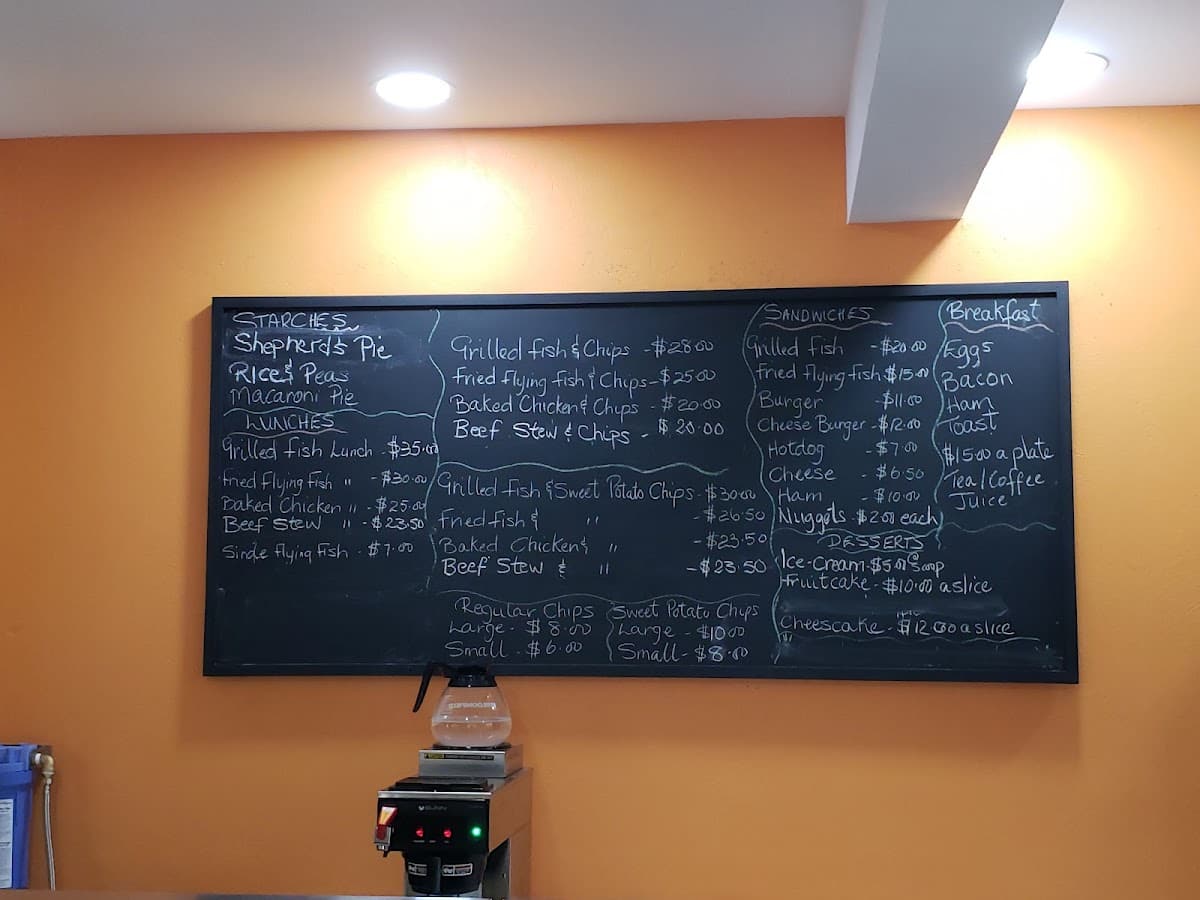 STARCHES
Shepherd's Pie
Rice & Peas
Macaroni Pie
LUNCHES
Grilled fish Lunch - $35.00
Fried Flying Fish " - $30.00
Baked Chicken " - $25.00
Beef Stew " - $23.50
Single flying Fish - $7.00
Grilled fish & Chips - $28.00
Fried flying fish & Chips - $25.00
Baked Chicken & Chips - $20.00
Beef Stew & Chips - $20.00
Grilled fish & Sweet Potato Chips - $30.00
Fried fish & " - $26.50
Baked Chicken & " - $23.50
Beef Stew & " - $23.50
Regular Chips
Large - $8.00
Small - $6.00
Sweet Potato Chips
Large - $10.00
Small - $8.00
SANDWICHES
Grilled fish - $20.00
Fried flying fish $15.00
Burger - $11.00
Cheese Burger - $12.00
Hotdog - $7.00
Cheese - $6.50
Ham - $10.00
Nuggets - $2.00 each
DESSERTS
Ice-Cream - $5.00 Scoop
Fruitcake - $10.00 a slice
Cheescake - $12.00 a slice
Breakfast
Eggs
Bacon
Ham
Toast
$15.00 a plate
Tea/Coffee
Juice
BUNN